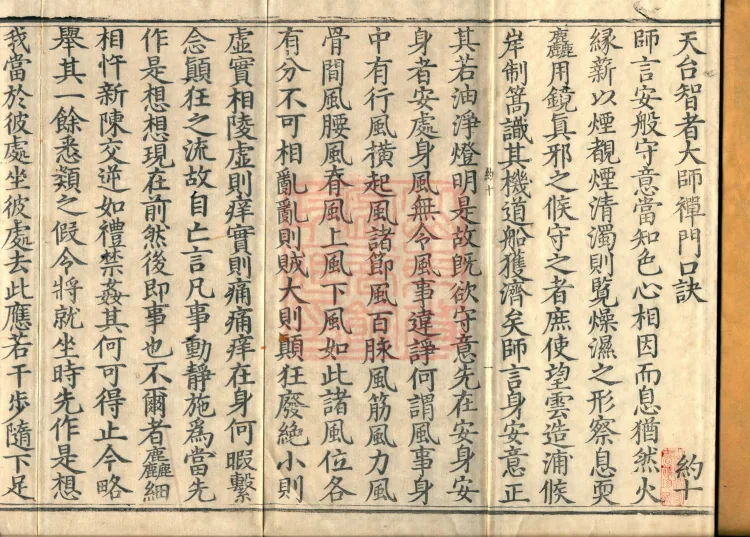 天台智者大師禪門口訣 約十
師言安般守意當知色心相因而息猶然火
緣薪以煙覩煙清濁則覽燥濕之形察息耎
麤用鏡眞邪之候守之者庶使望雲造浦候
岸制篙識其機道船獲濟矣師言身安意正
約十
其若油淨燈明是故旣欲守意先在安身安
身者安處身風無令風事違諍何謂風事身
中有行風橫起風諸節風百脉風筋風力風
骨間風腰風脊風上風下風如此諸風位各
有分不可相亂亂則賊大則顚狂廢絶小則
虛實相陵虛則痒實則痛痛痒在身何暇繫
念顚狂之流故自亡言凡事動靜施爲當先
作是想想現在前然後即事也不爾者麤細
相忤新陳交逆如禮禁姦其何可得止今略
舉其一餘悉類之假令將就坐時先作是想
我當於彼處坐彼處去此應若干步隨下足